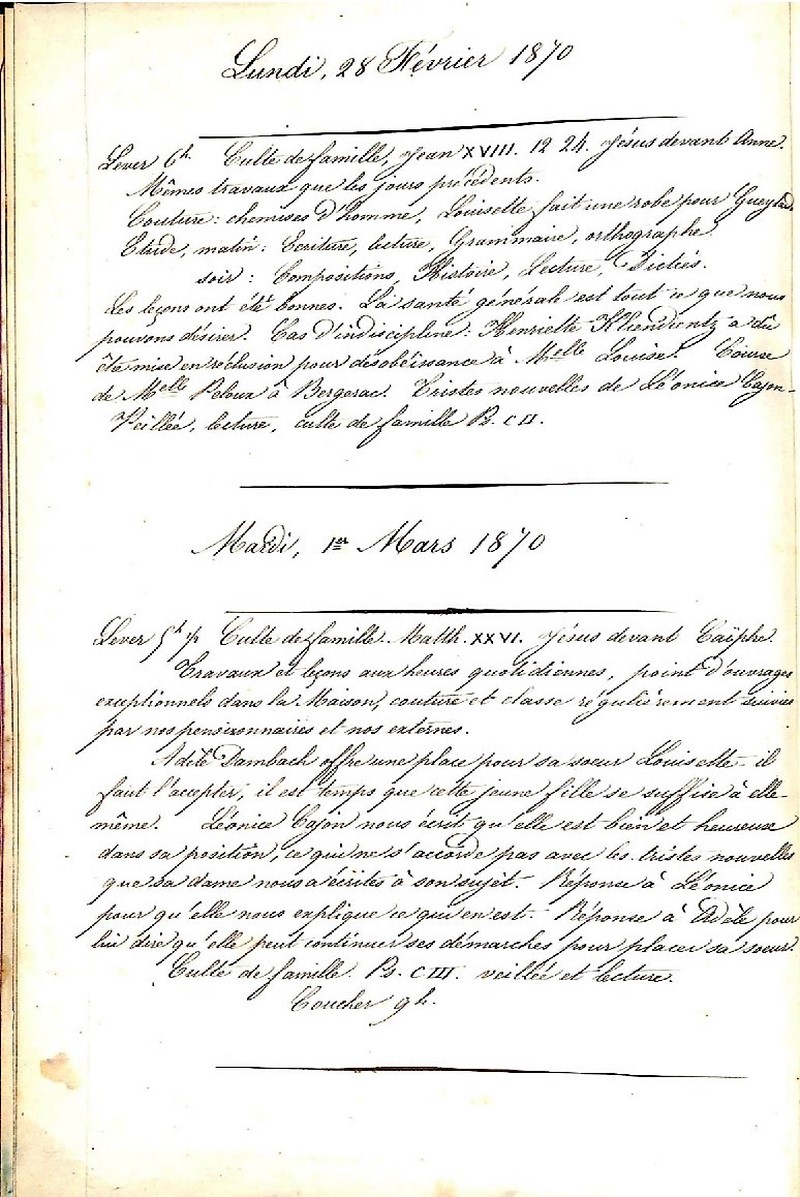 Lundi, 28 Février 1870
Lever 6h. Culte de famille, Jean XVIII. 12 24. Jésus devant Anne.
Mêmes travaux que les jours précédents.
Couture: chemises d'homme, Louisette fait une robe pour
Etude, matin: Ecriture, lecture, Grammaire, orthographe.
soir: Compositions, Histoire, Lecture, Dictées.
Les leçons ont été bonnes. La santé générale est tout ce que nous
pouvons désirer. Cas d'indiscipline: Henriette Kliendientz a dû
être mise en réclusion pour désobéissance à Melle Louise. Course
de Melle Peloux à Bergerac. Tristes nouvelles de Léonice Cajon-
Veillée, lecture, culte de famille Ps. CII.
Mardi, 1er Mars 1870
Lever 5h ½ Culte de famille. Matth. XXVI. Jésus devant Caïphe.
Travaux et leçons aux heures quotidiennes, point d'ouvrages
exceptionnels dans la Maison, couture et classe régulièrement suivies
par nos pensionnaires et nos externes.
Adèle Dambach offre une place pour sa soeur Louisette - il
faut l'accepter, il est temps que cette jeune fille se suffise à elle-
même. Léonice Cajon nous écrit qu'elle est bien et heureuse
dans sa position, ce qui ne s'accorde pas avec les tristes nouvelles
que sa dame nous a écrites à son sujet. Réponse à Léonice
pour qu'elle nous explique ce qui en est. Réponse à Adèle pour
lui dire qu'elle peut continuer ses démarches pour placer sa soeur.
Culte de famille. Ps. CIII. veillée et lecture.
Coucher 9h.